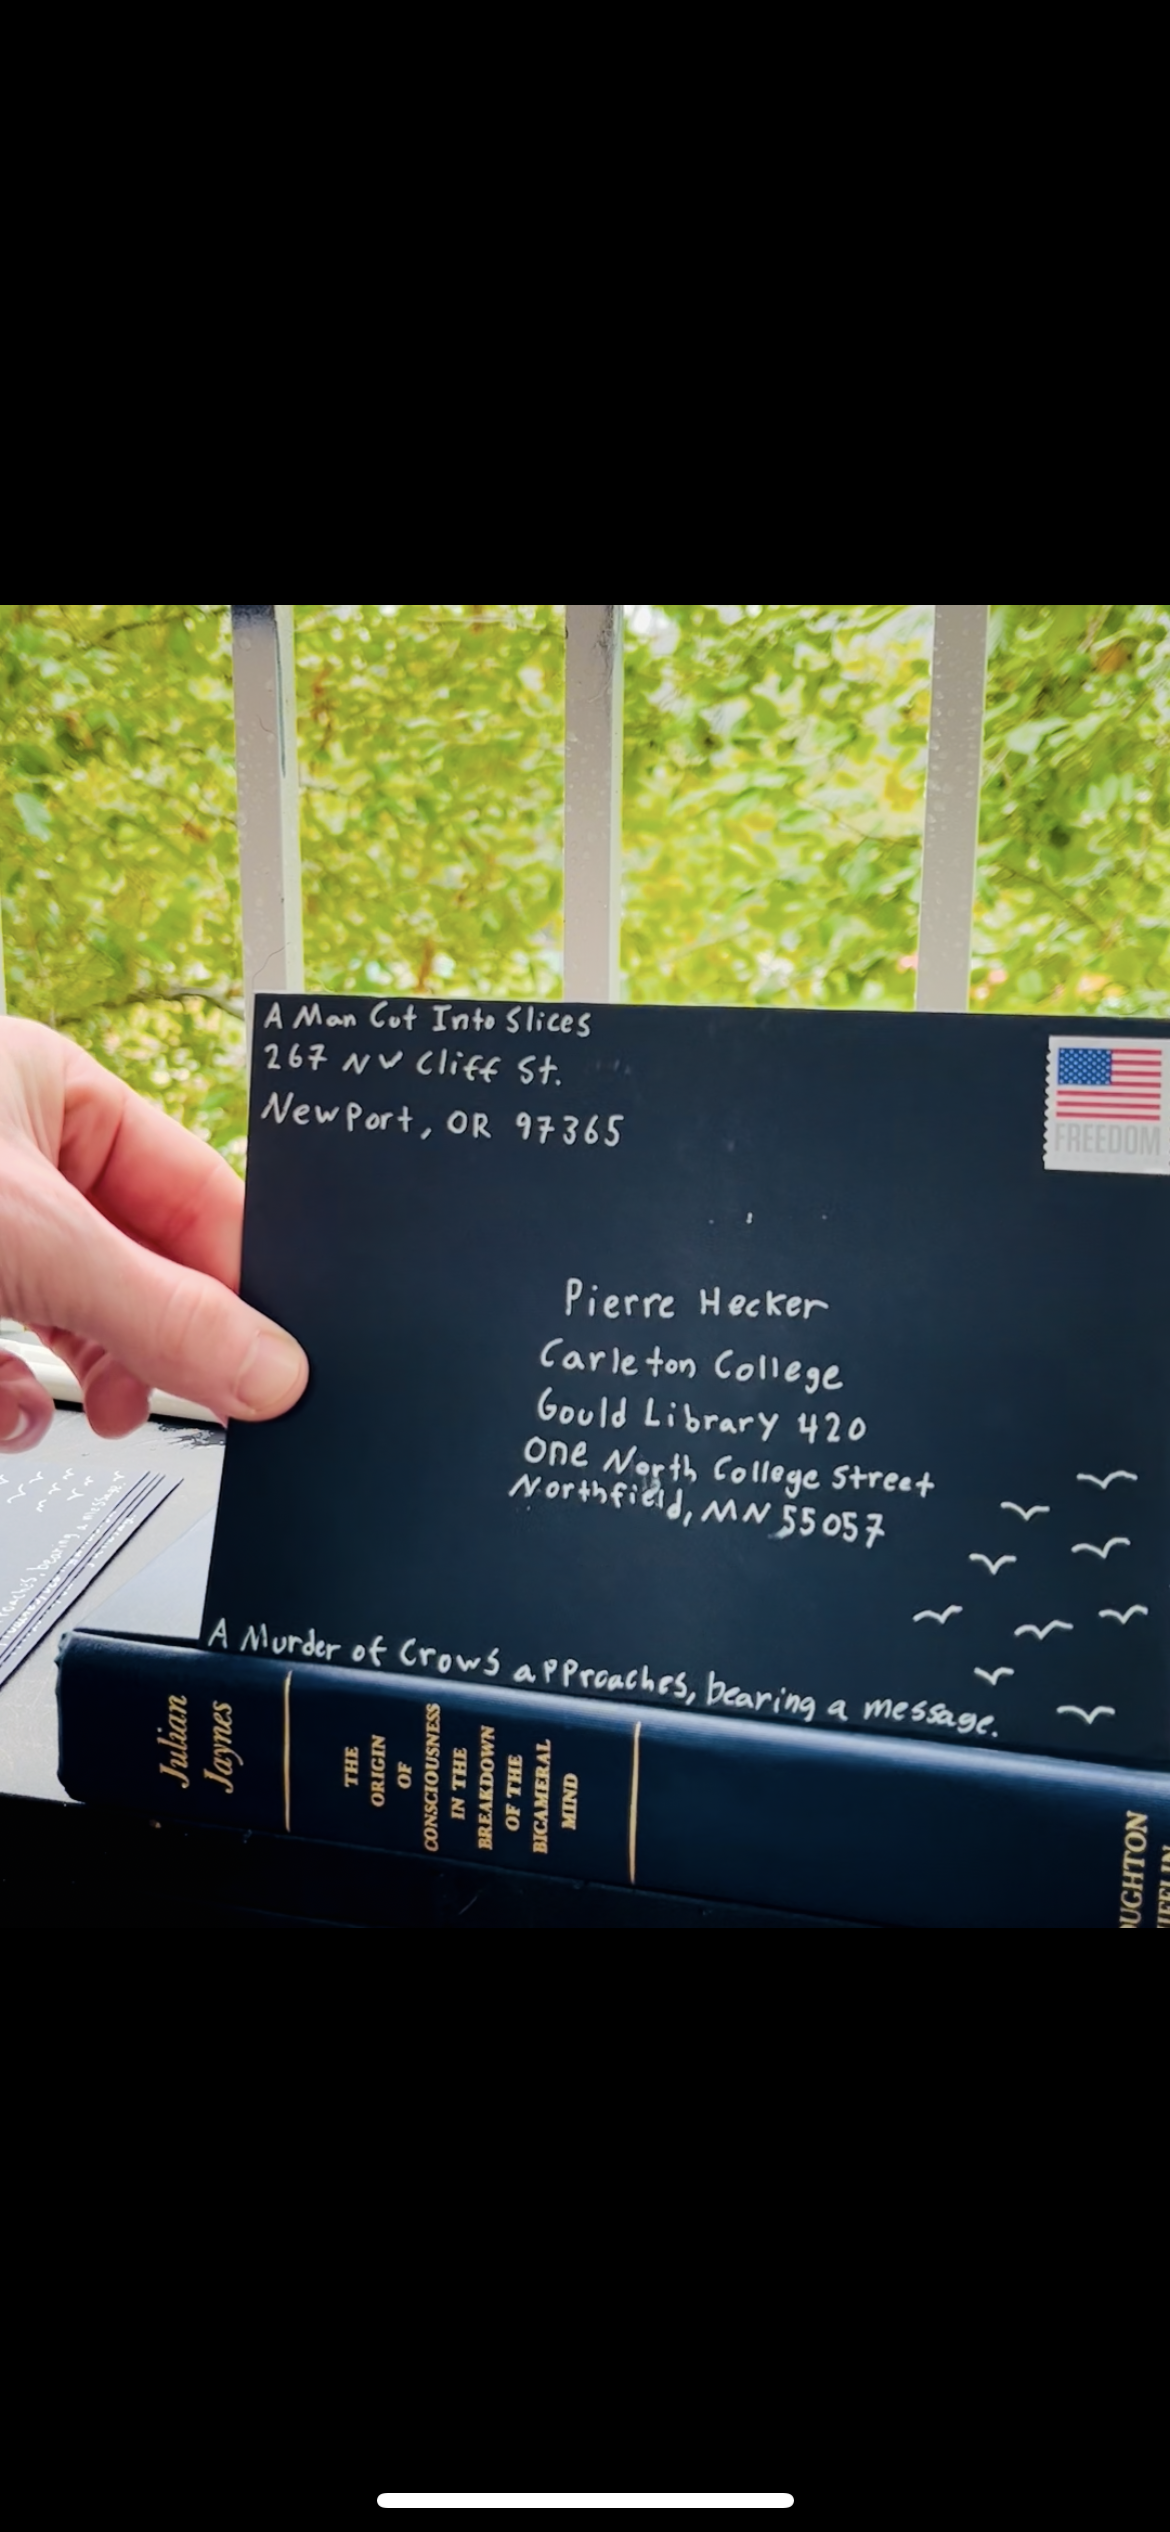 A Man Cut Into Slices
267 NW Cliff St.
Newport, OR 97365
FREEDOM
Pierre Hecker
Carleton College
Gould Library 420
One North College Street
Northfield, MN 55057
A Murder of Crows approaches, bearing a message.
bearing a message
Julian
Jaynes
THE
ORIGIN
OF
CONSCIOUSNESS
IN THE
BREAKDOWN
OF THE
BICAMERAL
MIND